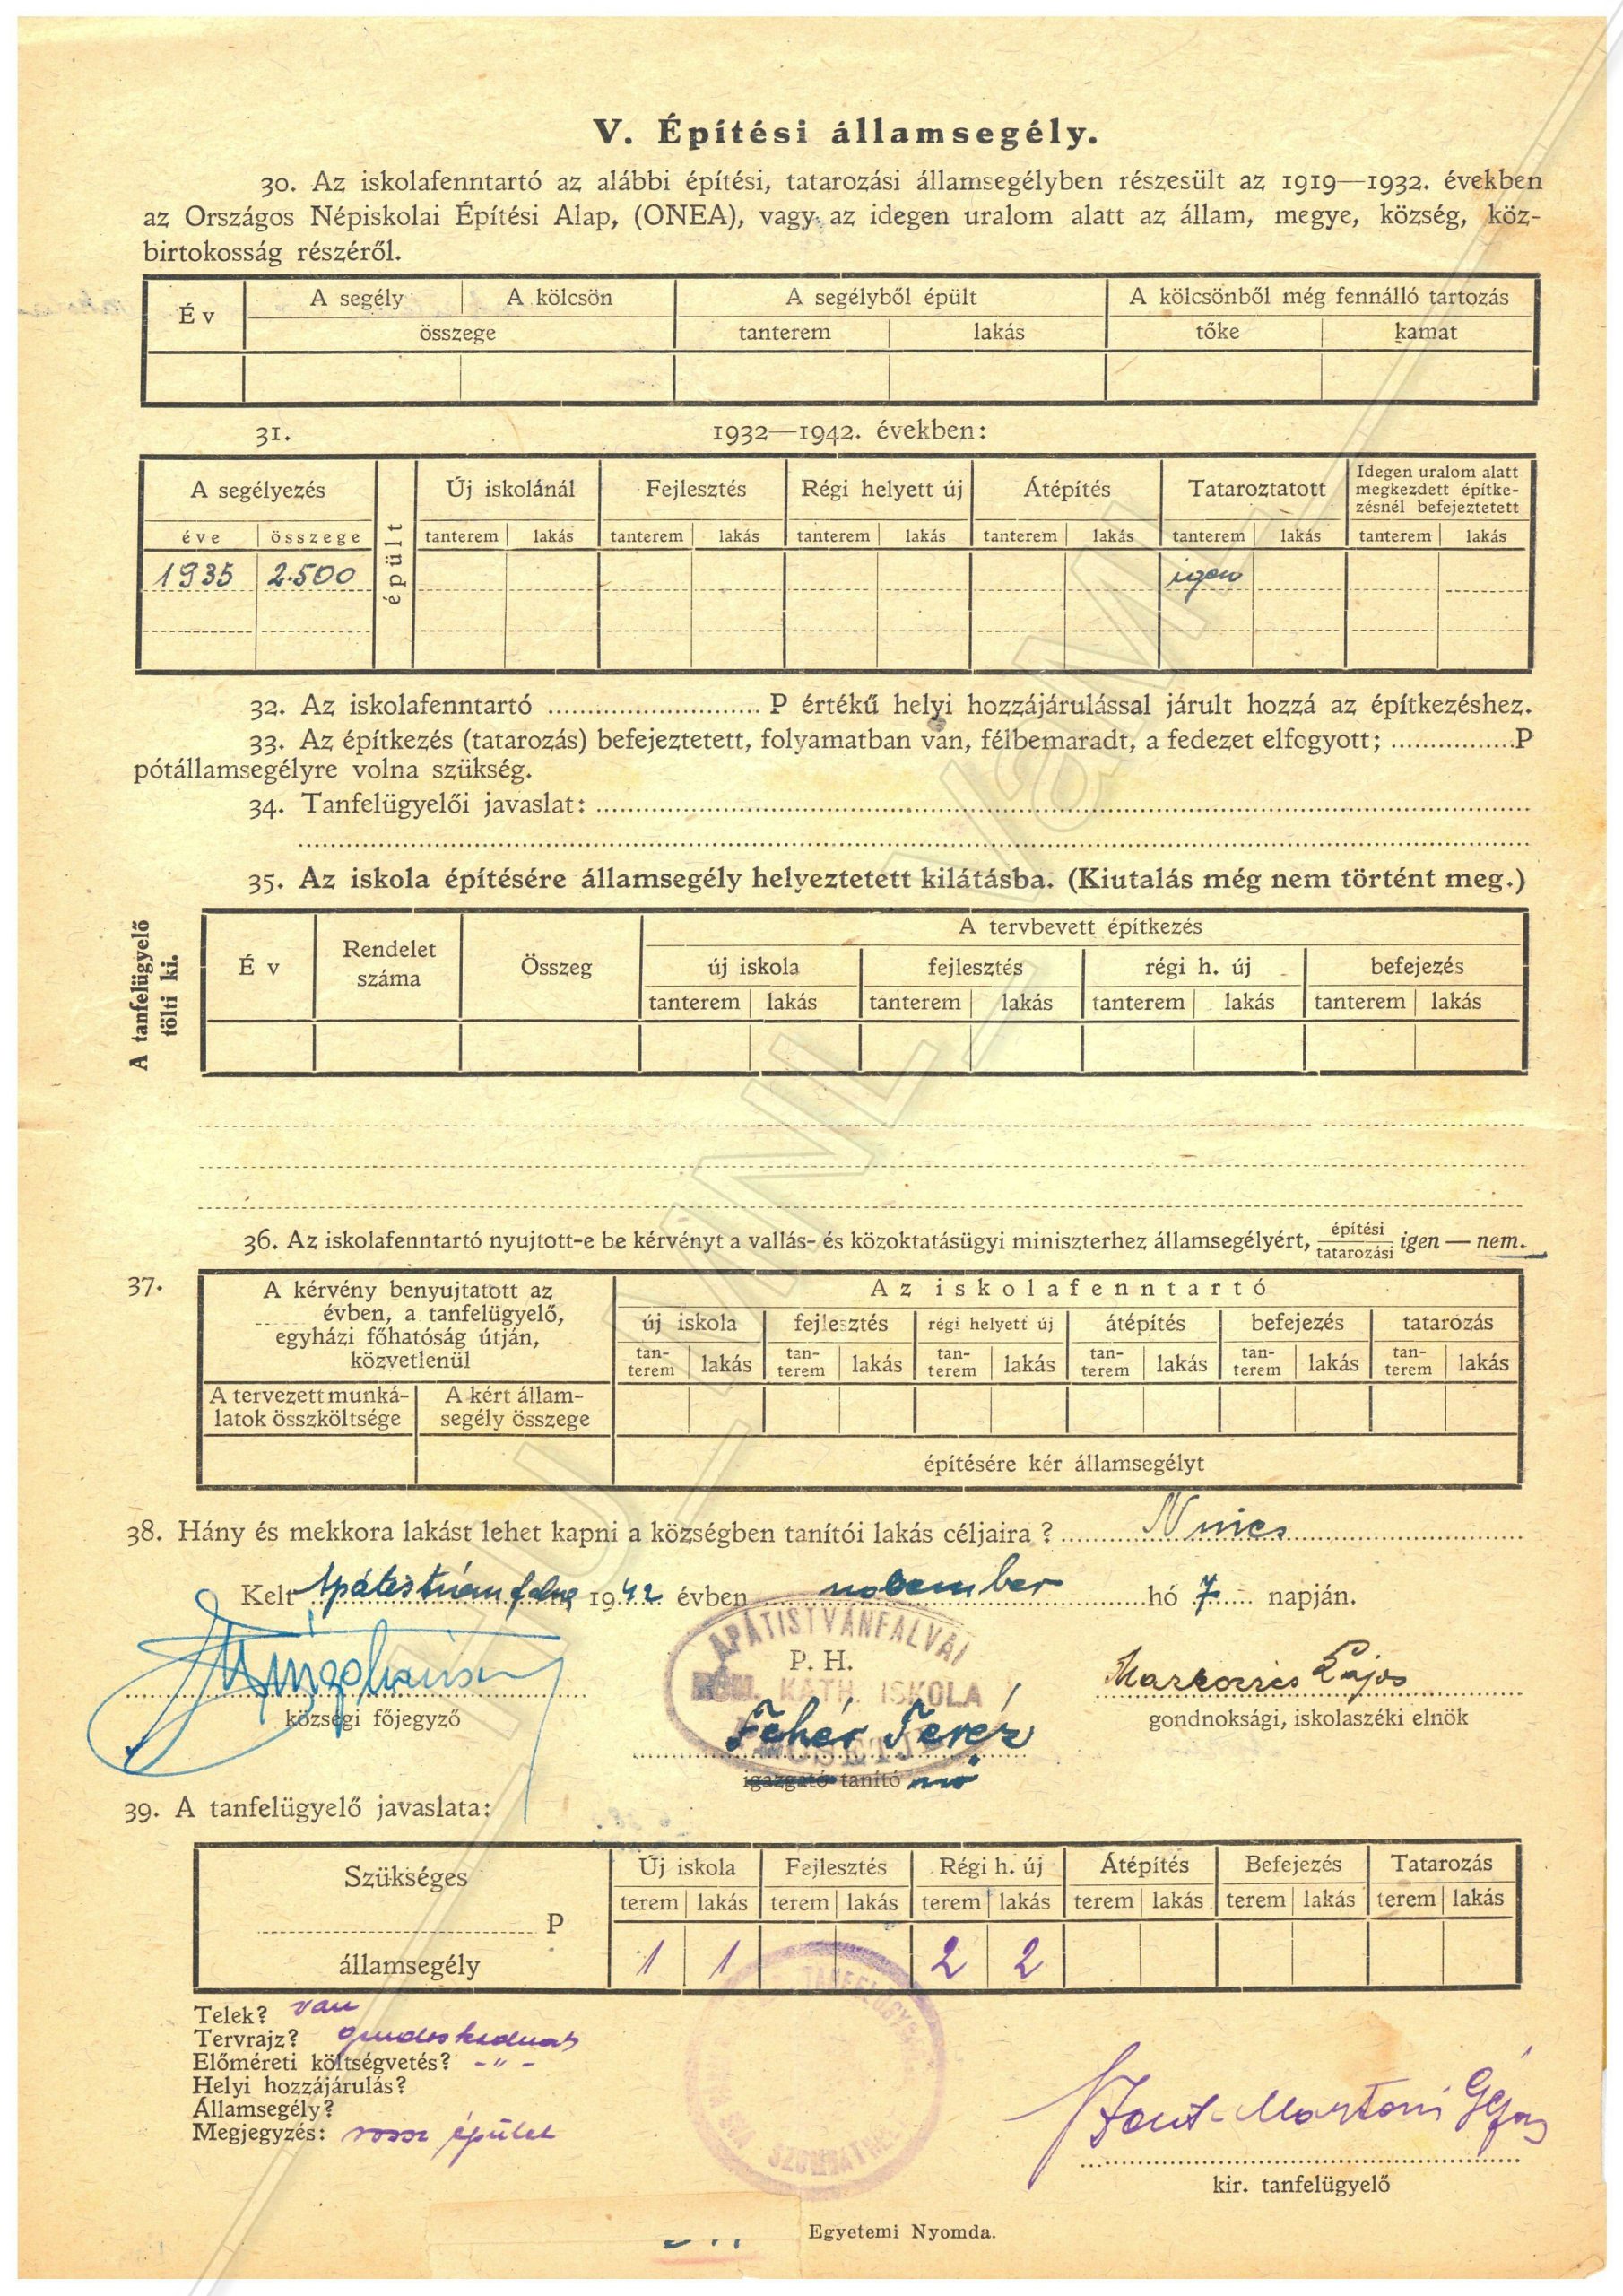 V. Építési államsegély.
30. Az iskolafenntartó az alábbi építési, tatarozási államsegélyben részesült az 1919—1932. években
az Országos Népiskolai Építési Alap, (ONEA), vagy az idegen uralom alatt az állam, megye, község, köz-
birtokosság részéről.
Év A segély A kölcsön A segélyből épült A kölcsönből még fennálló tartozás
összege tanterem lakás tőke kamat
31. 1932—1942. években:
A segélyezés épült Új iskolánál Fejlesztés Régi helyett új Átépítés Tataroztatott Idegen uralom alatt
megkezdett építke-
zésnél befejeztetett
éve összege tanterem lakás tanterem lakás tanterem lakás tanterem lakás tanterem lakás tanterem lakás
1935 2.500 igen
32. Az iskolafenntartó .......... P értékű helyi hozzájárulással járult hozzá az építkezéshez.
33. Az építkezés (tatarozás) befejeztetett, folyamatban van, félbemaradt, a fedezet elfogyott; ..........P
pótállamsegélyre volna szükség.
34. Tanfelügyelői javaslat:
35. Az iskola építésére államsegély helyeztetett kilátásba. (Kiutalás még nem történt meg.)
A tanfelügyelő
tölti ki.
Év Rendelet
száma Összeg A tervbevett építkezés
új iskola fejlesztés régi h. új befejezés
tanterem lakás tanterem lakás tanterem lakás tanterem lakás
36. Az iskolafenntartó nyujtott-e be kérvényt a vallás- és közoktatásügyi miniszterhez államsegélyért, építési
tatarozási igen — nem.
37. A kérvény benyujtatott az
évben, a tanfelügyelő,
egyházi főhatóság útján,
közvetlenül
Az iskolafenntartó
új iskola fejlesztés régi helyett új átépítés befejezés tatarozás
tan-
terem lakás tan-
terem lakás tan-
terem lakás tan-
terem lakás tan-
terem lakás tan-
terem lakás
A tervezett munká-
latok összköltsége A kért állam-
segély összege
építésére kér államsegélyt
38. Hány és mekkora lakást lehet kapni a községben tanítói lakás céljaira? Nincs
Kelt Apátistvánfalva 1942 évben november hó 7 napján.
APÁTISTVÁNFALVAI
P. H.
RÓM. KATH. ISKOLA
Markovics Lajos
községi főjegyző
gondnoksági, iskolaszéki elnök
Fehér Teréz
igazgató tanító nő
39. A tanfelügyelő javaslata:
Szükséges
P
államsegély
Új iskola Fejlesztés Régi h. új Átépítés Befejezés Tatarozás
terem lakás terem lakás terem lakás terem lakás terem lakás terem lakás
1 1 2 2
Telek? van
Tervrajz? gondoskodnak
Előméreti költségvetés? -"-
Helyi hozzájárulás?
Államsegély?
Megjegyzés: rossz épület
kir. tanfelügyelő
Egyetemi Nyomda.
HU_MNL_VaML